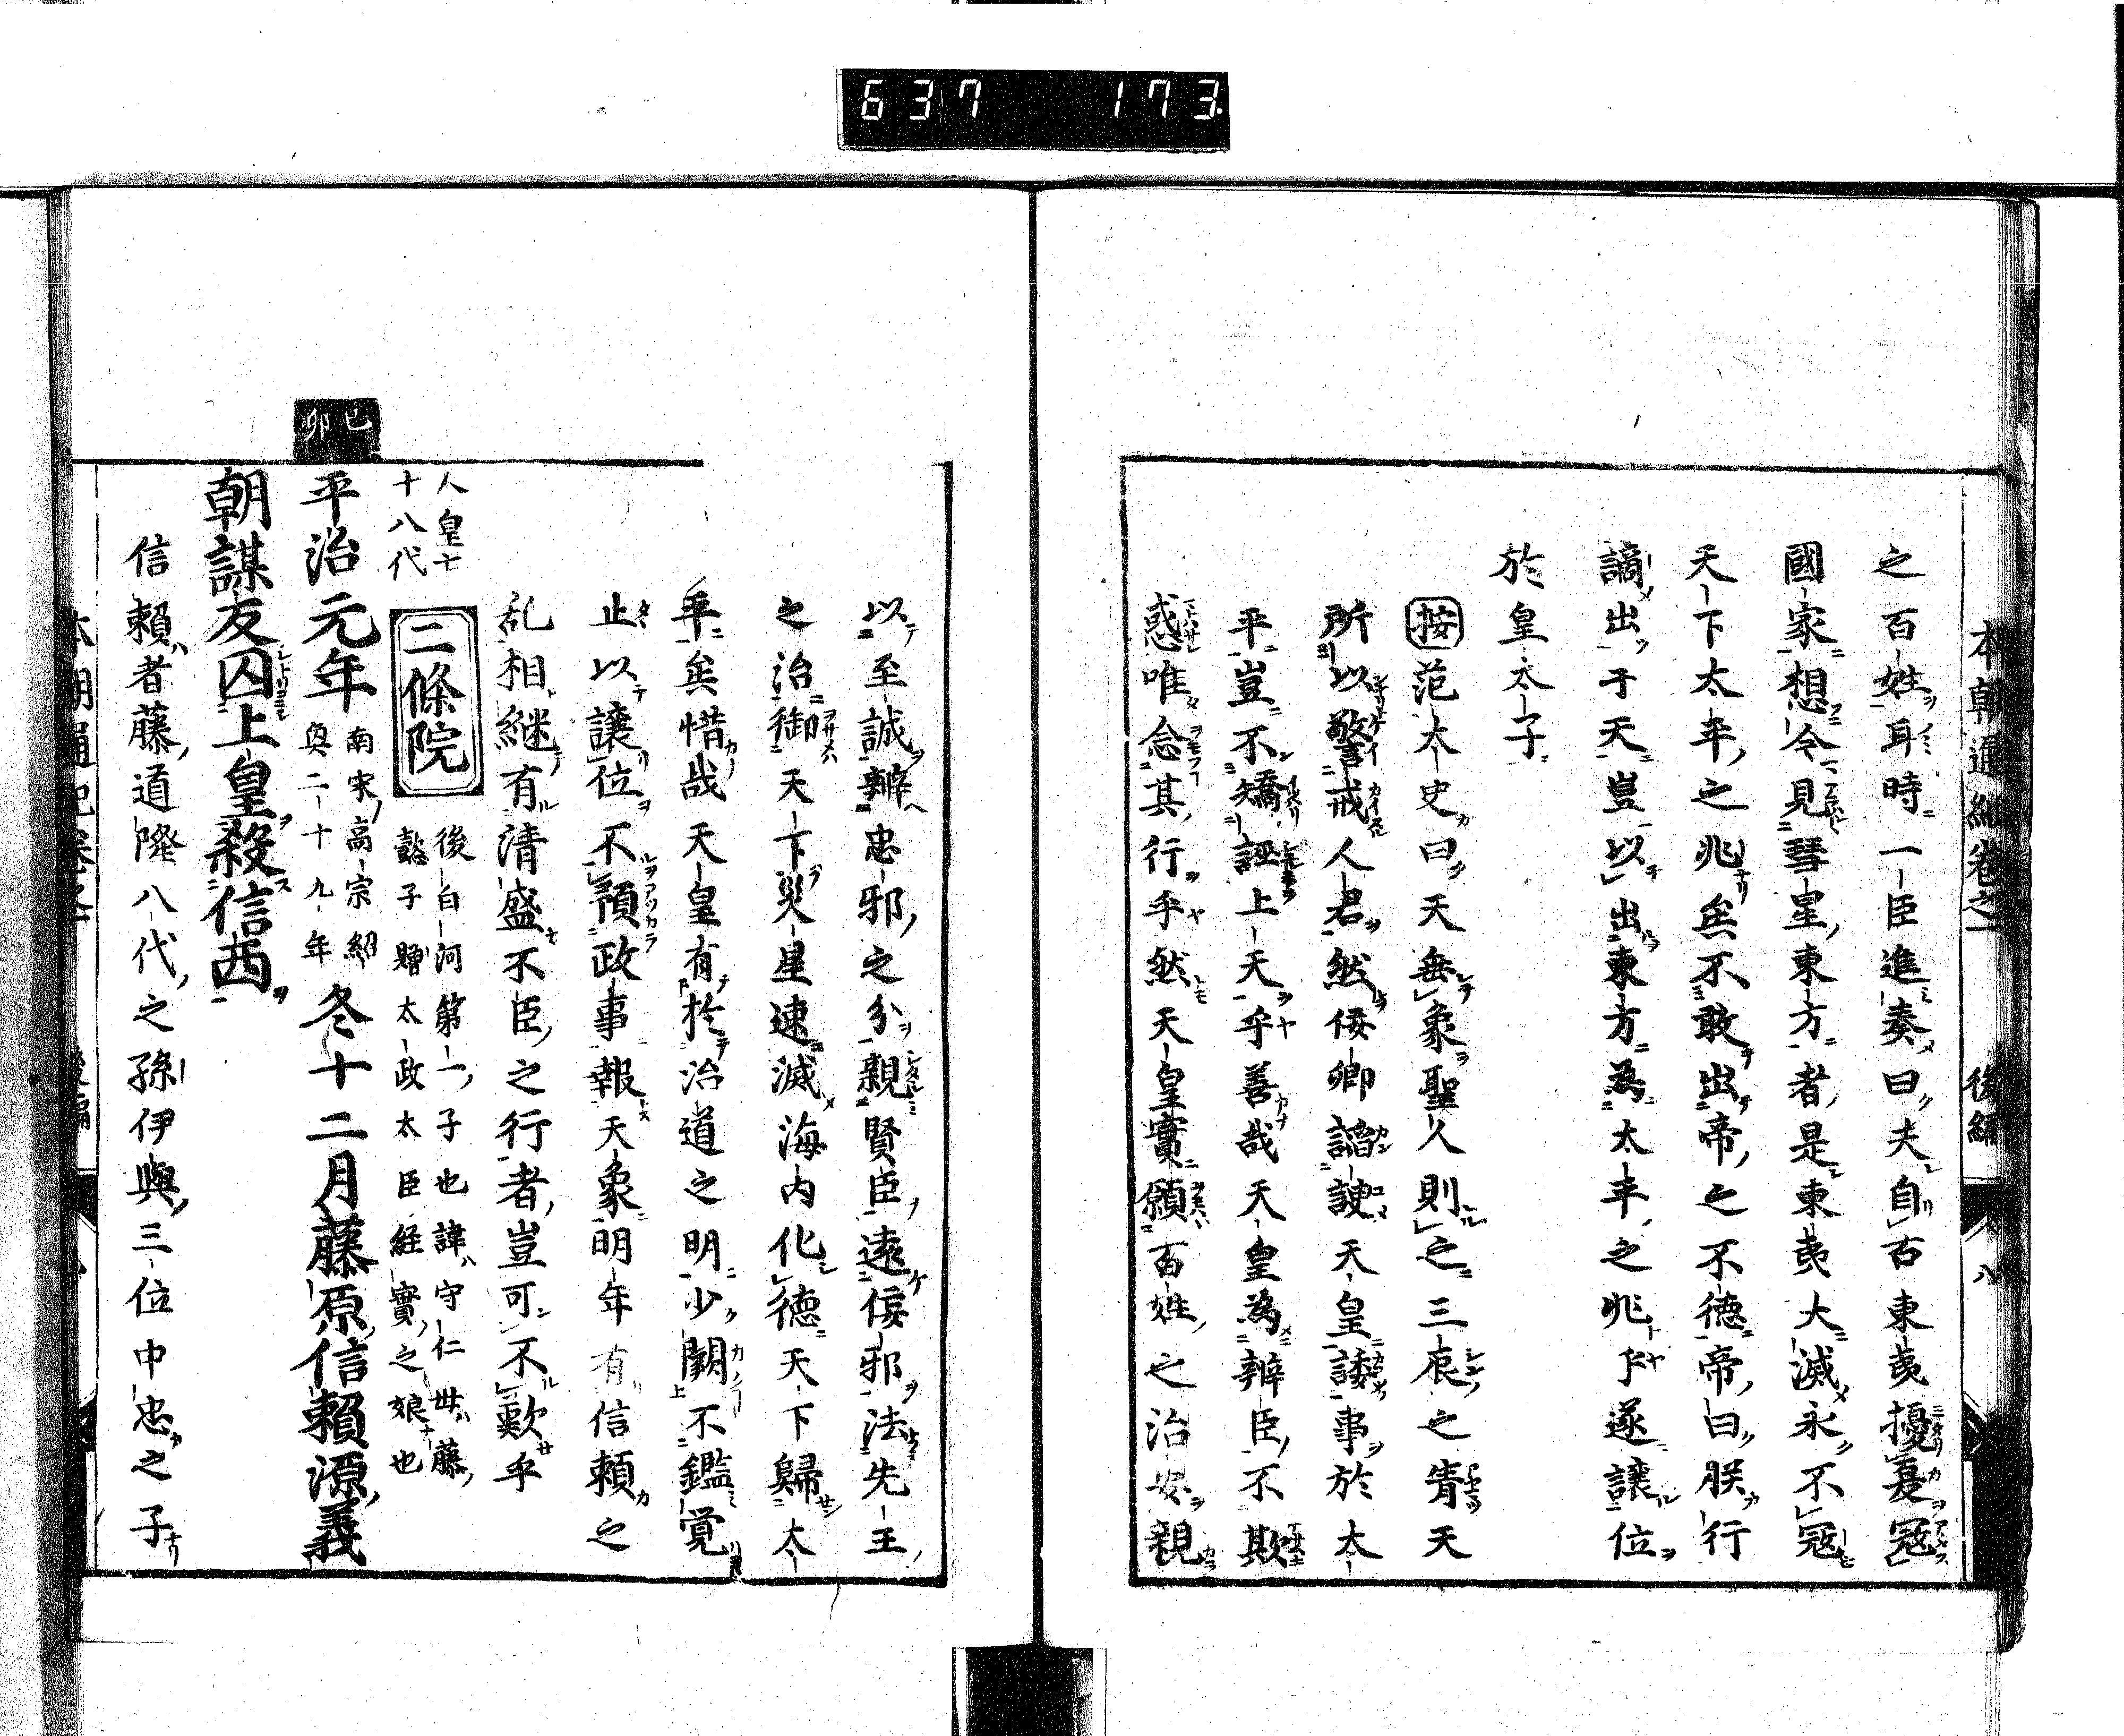 637 173
本朝通紀卷之一 後編 八
之百姓耳時一臣進奏曰夫自古東夷擾夏冦
國家想今見彗星東方者是東夷大滅永不冦
天下太平之兆矣不敢出帝之不德帝曰朕行
謫出于天豈以出東方為太平之兆乎遂讓位
於皇太子
按范太史曰天垂象聖人則之三辰之眚天
所以警戒人君然佞卿諂諛天皇諉事於太
平豈不矯誣上天乎善哉天皇為辨臣不欺
惑唯念其行乎然天皇實願百姓之治安親
以至誠辨忠邪之分親賢臣遠佞邪法先王
之治御天下災星速滅海内化德天下歸太
平矣惜哉天皇有於治道之明少闕不鑑覚
止以讓位不預政事報天象明年有信頼之
乱相継有清盛不臣之行者豈可不歎乎
人皇七十八代
二條院
後白河第一子也諱守仁母藤
懿子贈太政太臣経實之娘也
己卯
平治元年
南宋高宗紹
興二十九年
冬十二月藤原信賴源義
朝謀反囚上皇殺信西
信賴者藤道隆八代之孫伊與三位中忠之子